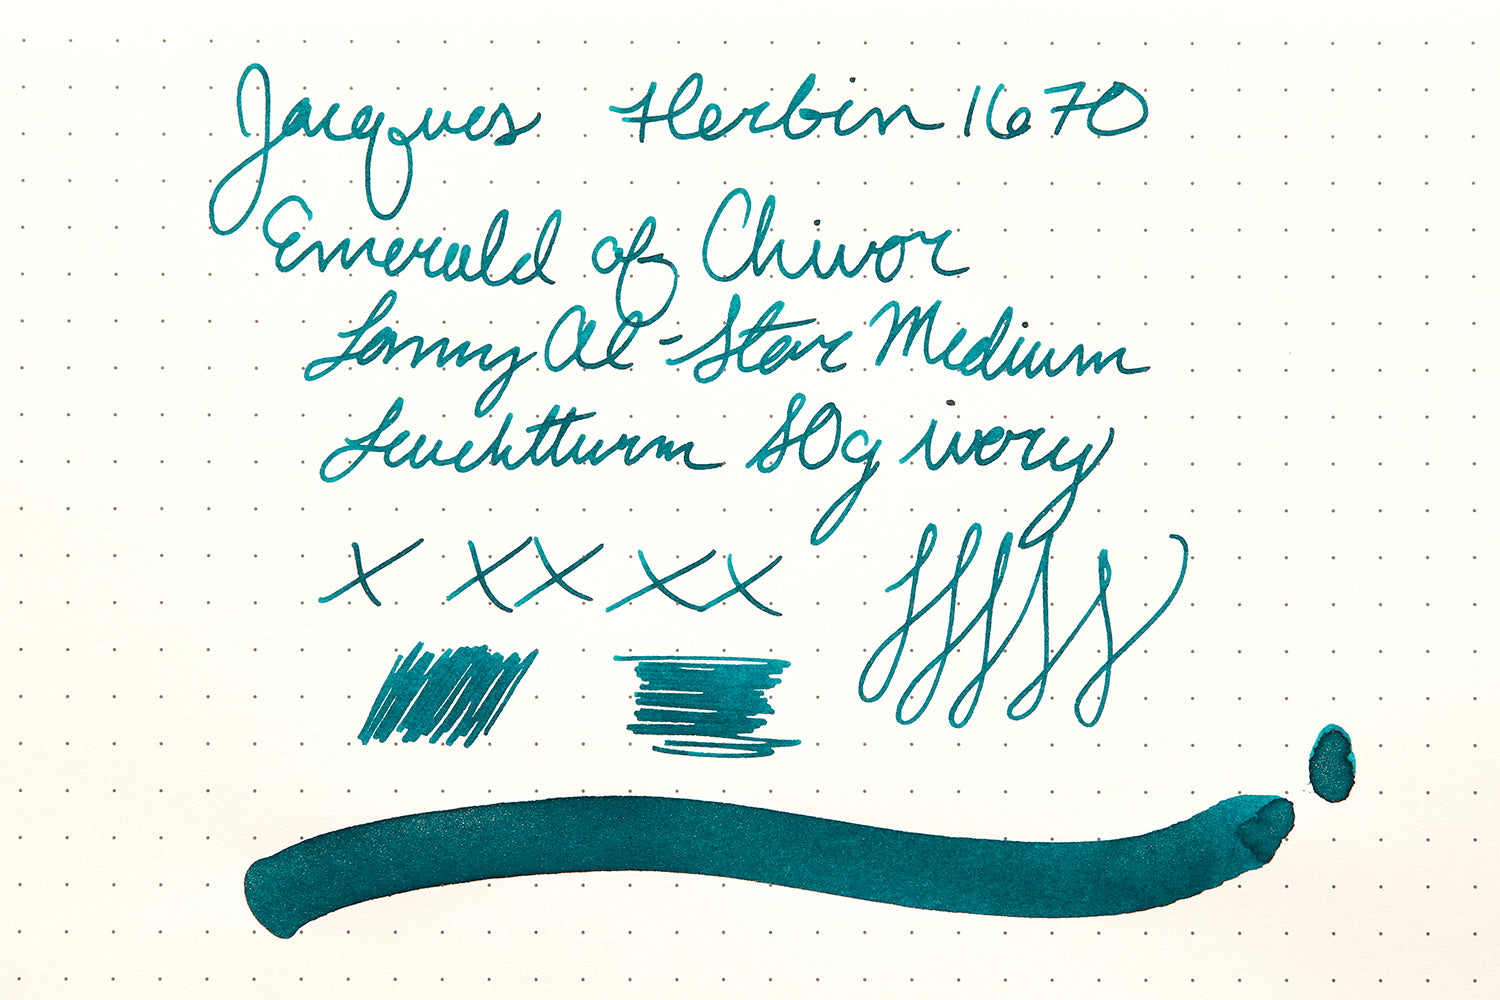 Jacques Herbin 1670
Emerald of Chivor
Lamy Al-Star Medium
Leuchtturm 80g ivory
x xx xx